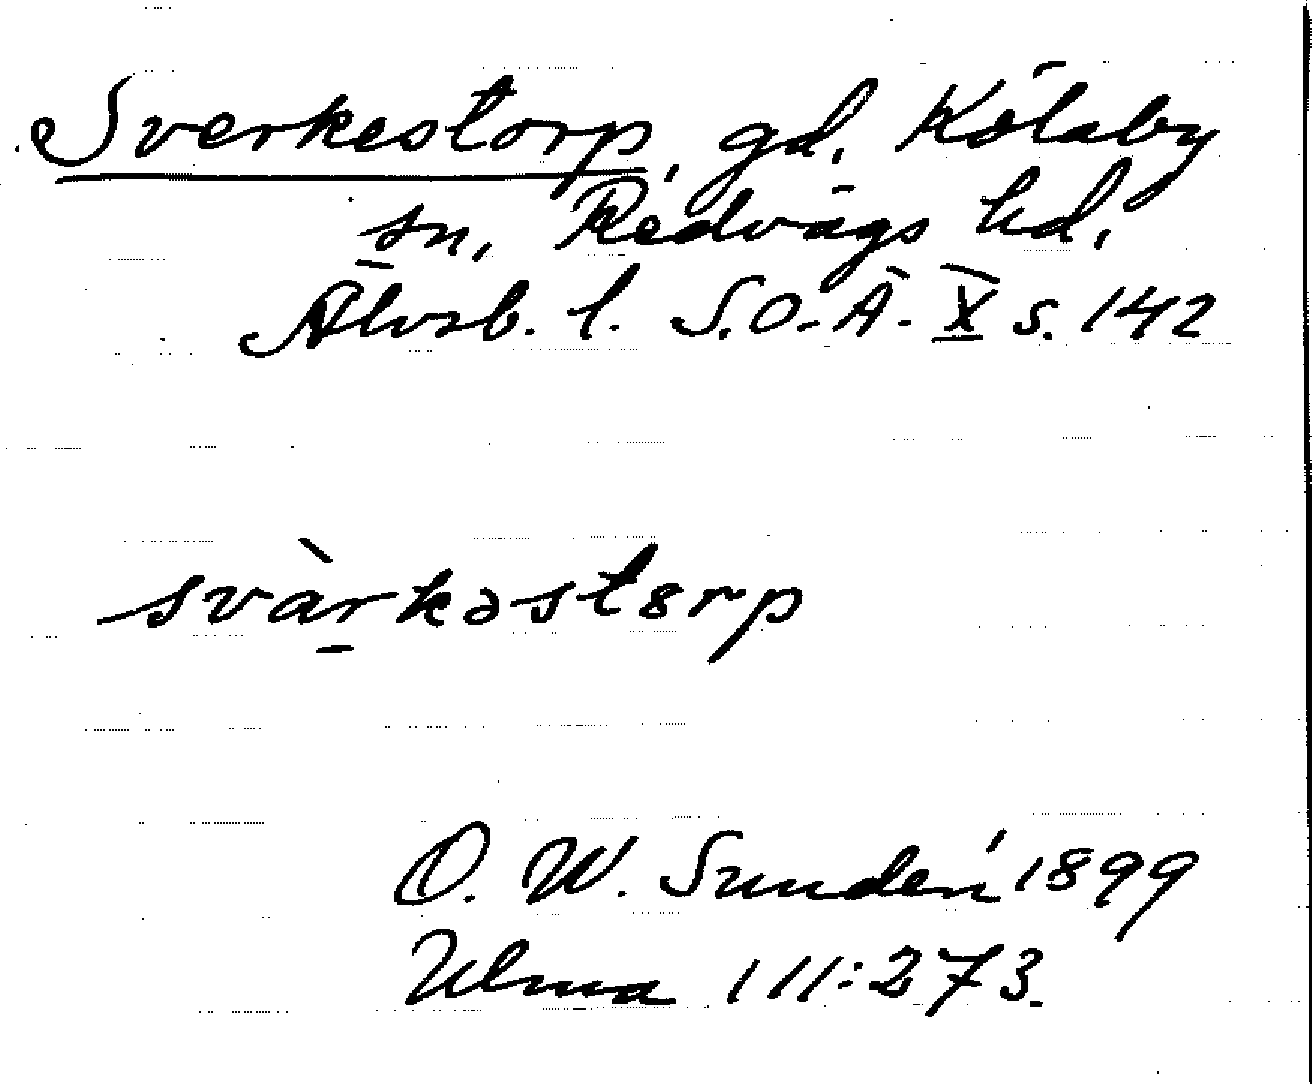 Sverkestorp, gd, Kölaby
sn, Redvägs hd,
Älvsb. l. S.O.Ä. X s. 142
svàrkəstɔrp
O. W. Sundén 1899
Ulma 111:273.